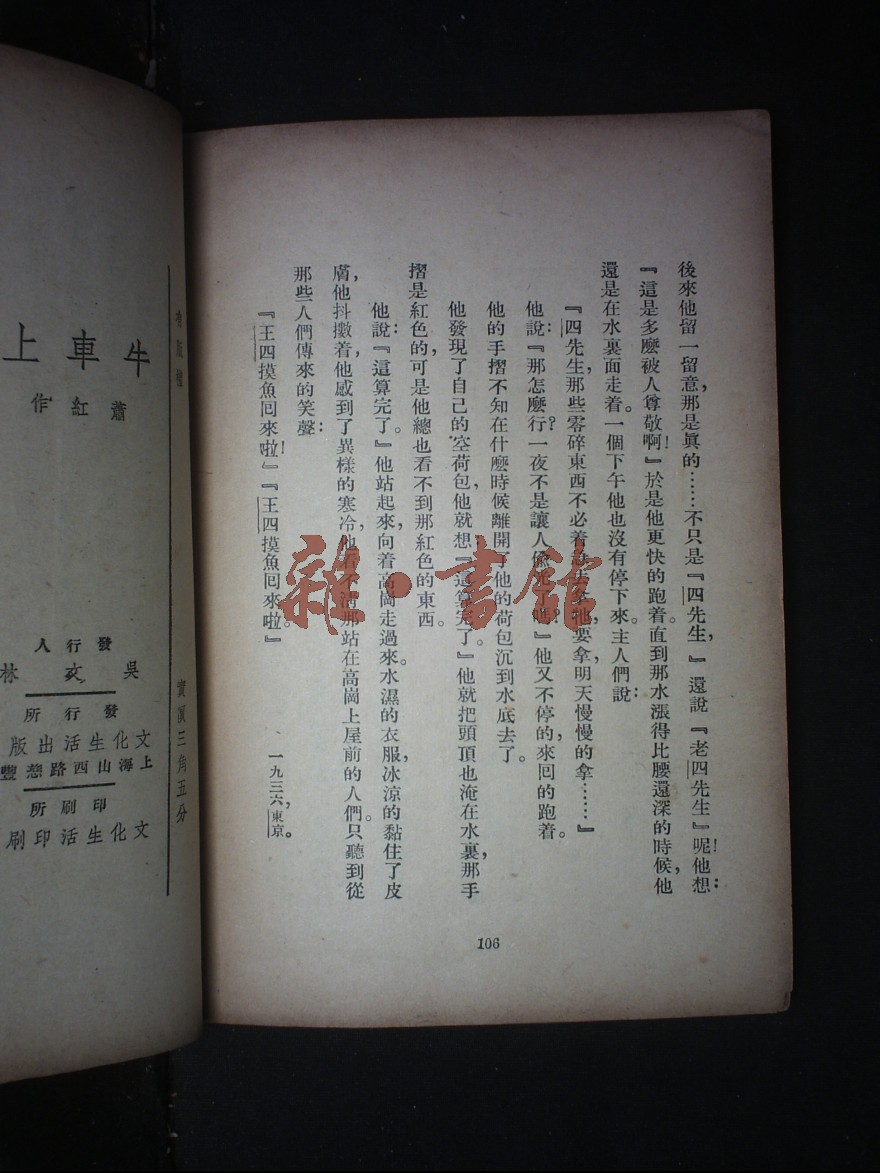 後來他留一留意，那是眞的……不只是『四先生，』還說『老四先生』呢！他想：
『這是多麼被人尊敬啊！』於是他更快的跑着。直到那水漲得比腰還深的時候，他
還是在水裏面走着。一個下午他也沒有停下來。主人們說：
『四先生，那些零碎東西不必着
去拿牠，要拿，明天慢慢的拿……』
他說：『那怎麼行？一夜不是讓人偷光了嗎？』他又不停的來回的跑着。
他的手摺不知在什麼時候離開了他的荷包沉到水底去了。
他發現了自己的空荷包，他就想：『這算完了。』他就把頭頂也淹在水裏，那手
摺是紅色的，可是他總也看不到那紅色的東西。
他說：『這算完了。』他站起來，向着高崗走過來。水濕的衣服，冰涼的黏住了皮
膚，他抖擻着，他感到了異樣的寒冷，他看不清那站在高崗上屋前的人們。只聽到從
那些人們傳來的笑聲：
『王四摸魚回來啦！』『王四摸魚回來啦。』
一九三六，東京。
106
雜·書館
實價三角五分
牛車上
蕭紅作
發行人
吳文林
發行所
文化生活出版
上海山西路慈豐
印刷所
文化生活印刷